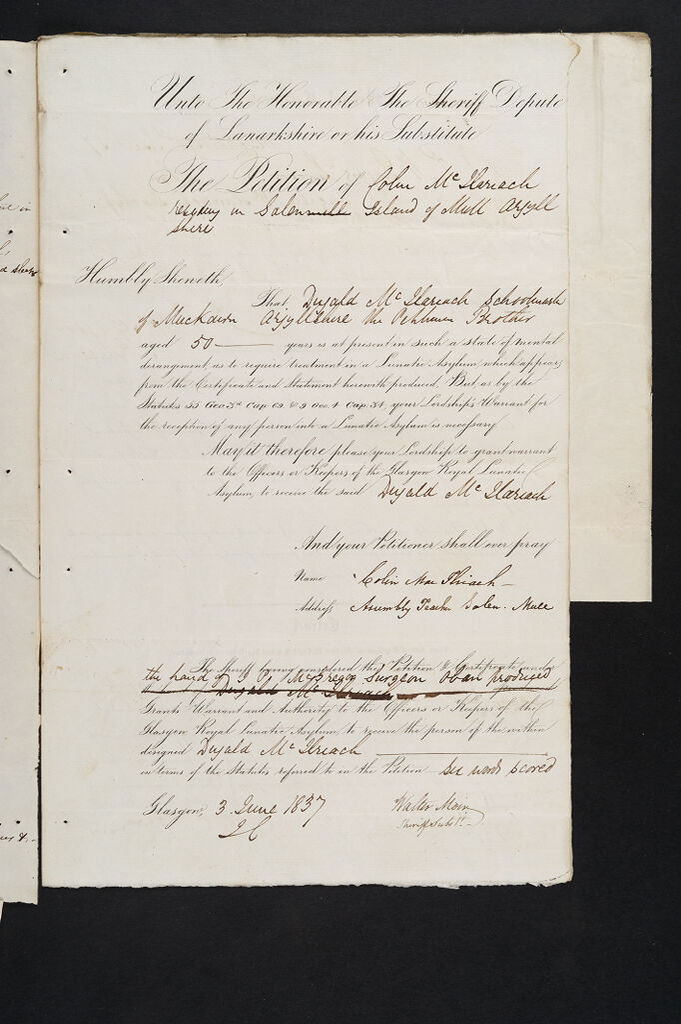 Unto The Honorable The Sheriff Depute
of Lanarkshire or his Substitute
The Petition of Colin Mc Ilariach
residing in Salen Island of Mull Argyll
shire
Humbly Sheweth,
That Dugald Mc Ilariach Schoolmastr
of Muckairn Argyllshire the Petitioners Brother
aged 50 years is at present in such a state of mental
derangement, as to require treatment in a Lunatic Asylum which appears
from the Certificate and Statement herewith produced. But as by the
Statutes 55 Geo 3d Cap 69 & 9 Geo 4 Cap 34, your Lordship's Warrant for
the reception of any person into a Lunatic Asylum is necessary
May it therefore please your Lordship to grant warrant
to the Officers or Keepers of the Glasgow Royal Lunatic
Asylum, to receive the said Dugald Mc Ilariach
And your Petitioner shall ever pray
Name Colin Mac Ilriach
Address Assembly Teacher Salen. Mull
The Sheriff having considered this Petition & Certificate under
the hand of McGregor Surgeon Oban produced
Dugald Mc Ilriach
Grants Warrant and Authority to the Officers or Keepers of the
Glasgow Royal Lunatic Asylum to receive the person of the within
designed Dugald Mc Ilriach
in terms of the Statutes referred to in the Petition six words scored
Glasgow, 3 June 1837 Walter Moir
Sheriff Subst.